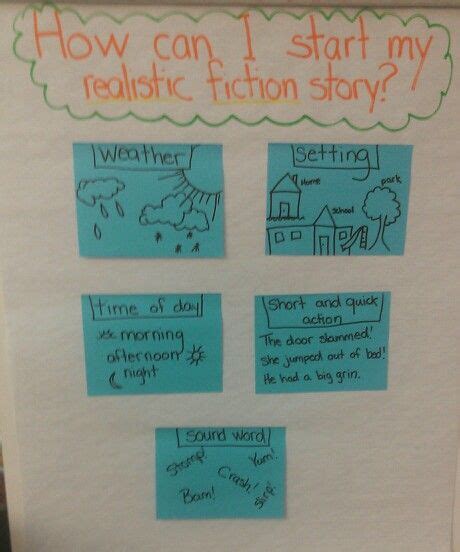 How can I start my
realistic fiction story?
Weather
Setting
Home
park
School
time of day
morning
afternoon
night
Short and quick
action
The door slammed!
She jumped out of bed!
He had a big grin.
Sound word
Stomp!
Yum!
Crash!
Bam!
Slirp!